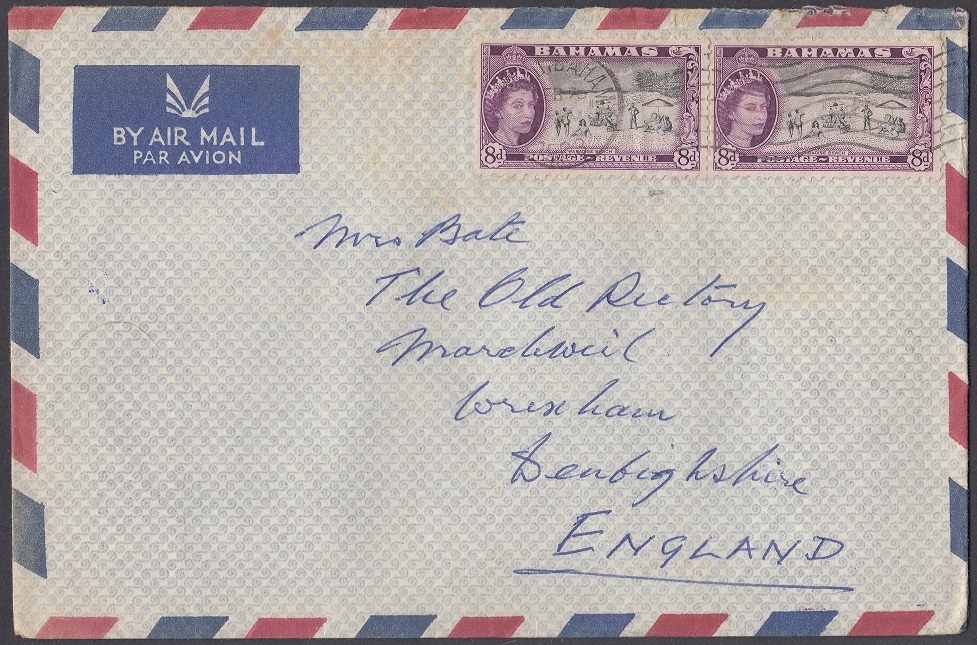 BAHAMAS BAHAMAS
BY AIR MAIL
PAR AVION
8d POSTAGE~REVENUE 8d 8d POSTAGE~REVENUE 8d
Mrs Bate
The Old Rectory
Marchwiel
Wrexham
Denbighshire
ENGLAND